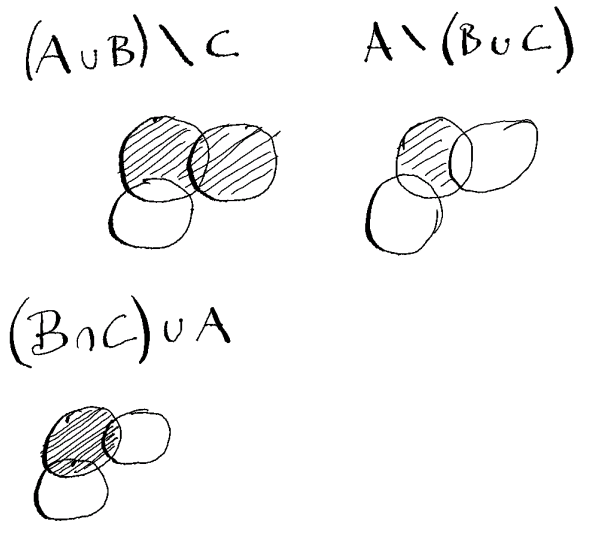 (A∪B)\C
A\(B∪C)
(B∩C)∪A